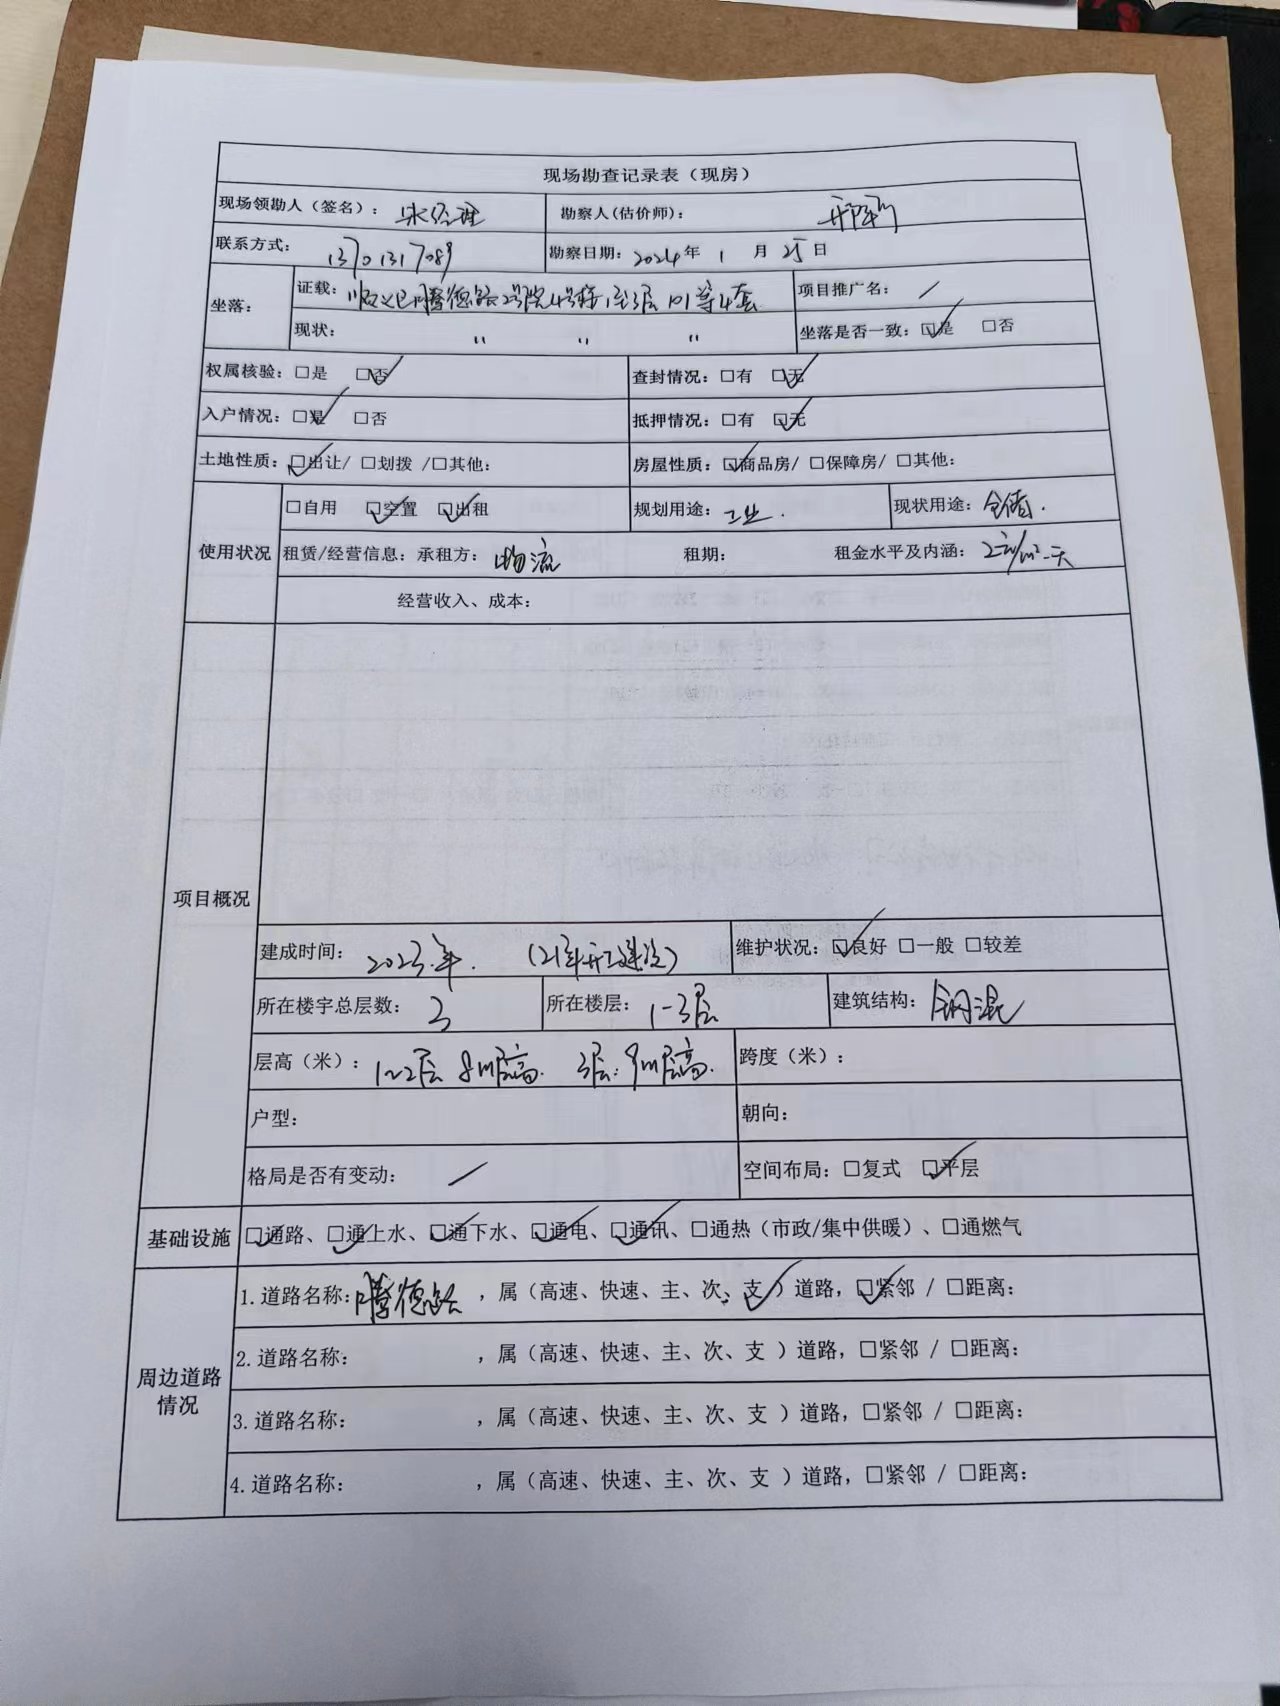 现场勘查记录表（现房）
现场领勘人（签名）： 宋经理 勘察人(估价师)：
联系方式： 13701317089 勘察日期：2024年 1 月 25 日
坐落： 证载： 顺义区腾德路2号院4号楼1至3层101等4套 项目推广名： /
现状： 〃 〃 〃 坐落是否一致：☑是 □否
权属核验：□是 ☑否 查封情况：□有 ☑无
入户情况：☑是 □否 抵押情况：□有 ☑无
土地性质：☑出让/ □划拨 /□其他: 房屋性质：☑商品房/ □保障房/ □其他:
使用状况 □自用 ☑空置 ☑出租 规划用途：工业. 现状用途：仓储.
租赁/经营信息：承租方： 物流 租期： 租金水平及内涵： 2元/m²·天
经营收入、成本：
项目概况
建成时间： 2023年. （21年开工建设） 维护状况：☑良好 □一般 □较差
所在楼宇总层数： 3 所在楼层： 1-3层 建筑结构： 钢混
层高（米）： 1~2层 8m层高. 3层：9m层高. 跨度（米）：
户型： 朝向：
格局是否有变动： / 空间布局：□复式 ☑平层
基础设施 ☑通路、☑通上水、☑通下水、☑通电、☑通讯、□通热（市政/集中供暖）、□通燃气
周边道路情况
1.道路名称：腾德路 ，属（高速、快速、主、次、支✓）道路，☑紧邻 / □距离：
2.道路名称： ，属（高速、快速、主、次、支 ）道路，□紧邻 / □距离：
3.道路名称： ，属（高速、快速、主、次、支 ）道路，□紧邻 / □距离：
4.道路名称： ，属（高速、快速、主、次、支 ）道路，□紧邻 / □距离：